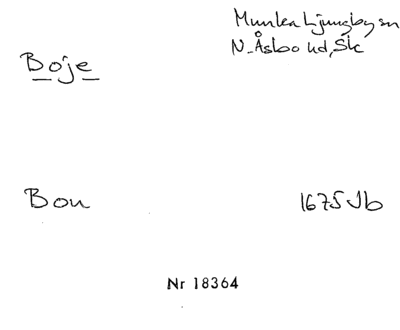 Munka Ljungby sn
N. Åsbo hd, Sk
Boje
Bon 1675 Jb
Nr 18364